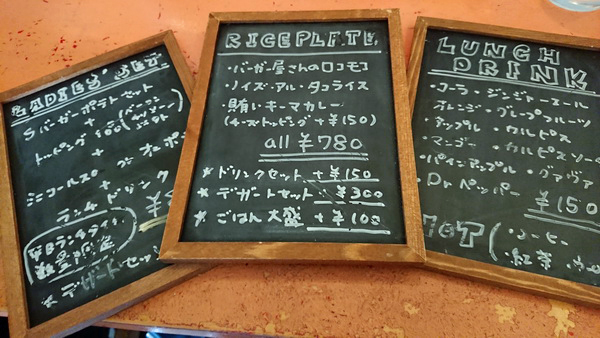 LADIES' SET
Sバーガーポテトセット
+
トッピング
+
ミニコールスロー
+
ランチドリンク
平日ランチタイム
数量限定
*デザートセット
RICEPLATE
・バーガー屋さんのロコモコ
・ノイズ・アル・タコライス
・賄いキーマカレー
(チーズトッピング+¥150)
all ¥780
*ドリンクセット +¥150
*デザートセット +¥300
*ごはん大盛 +¥100
LUNCH
DRINK
・コーラ・ジンジャーエール
オレンジ・グレープフルーツ
・アップル・カルピス
・マンゴー・カルピスソー
・パインアップル・グァヴァ
・Dr ペッパー
¥150
HOT(・コーヒー
・紅茶